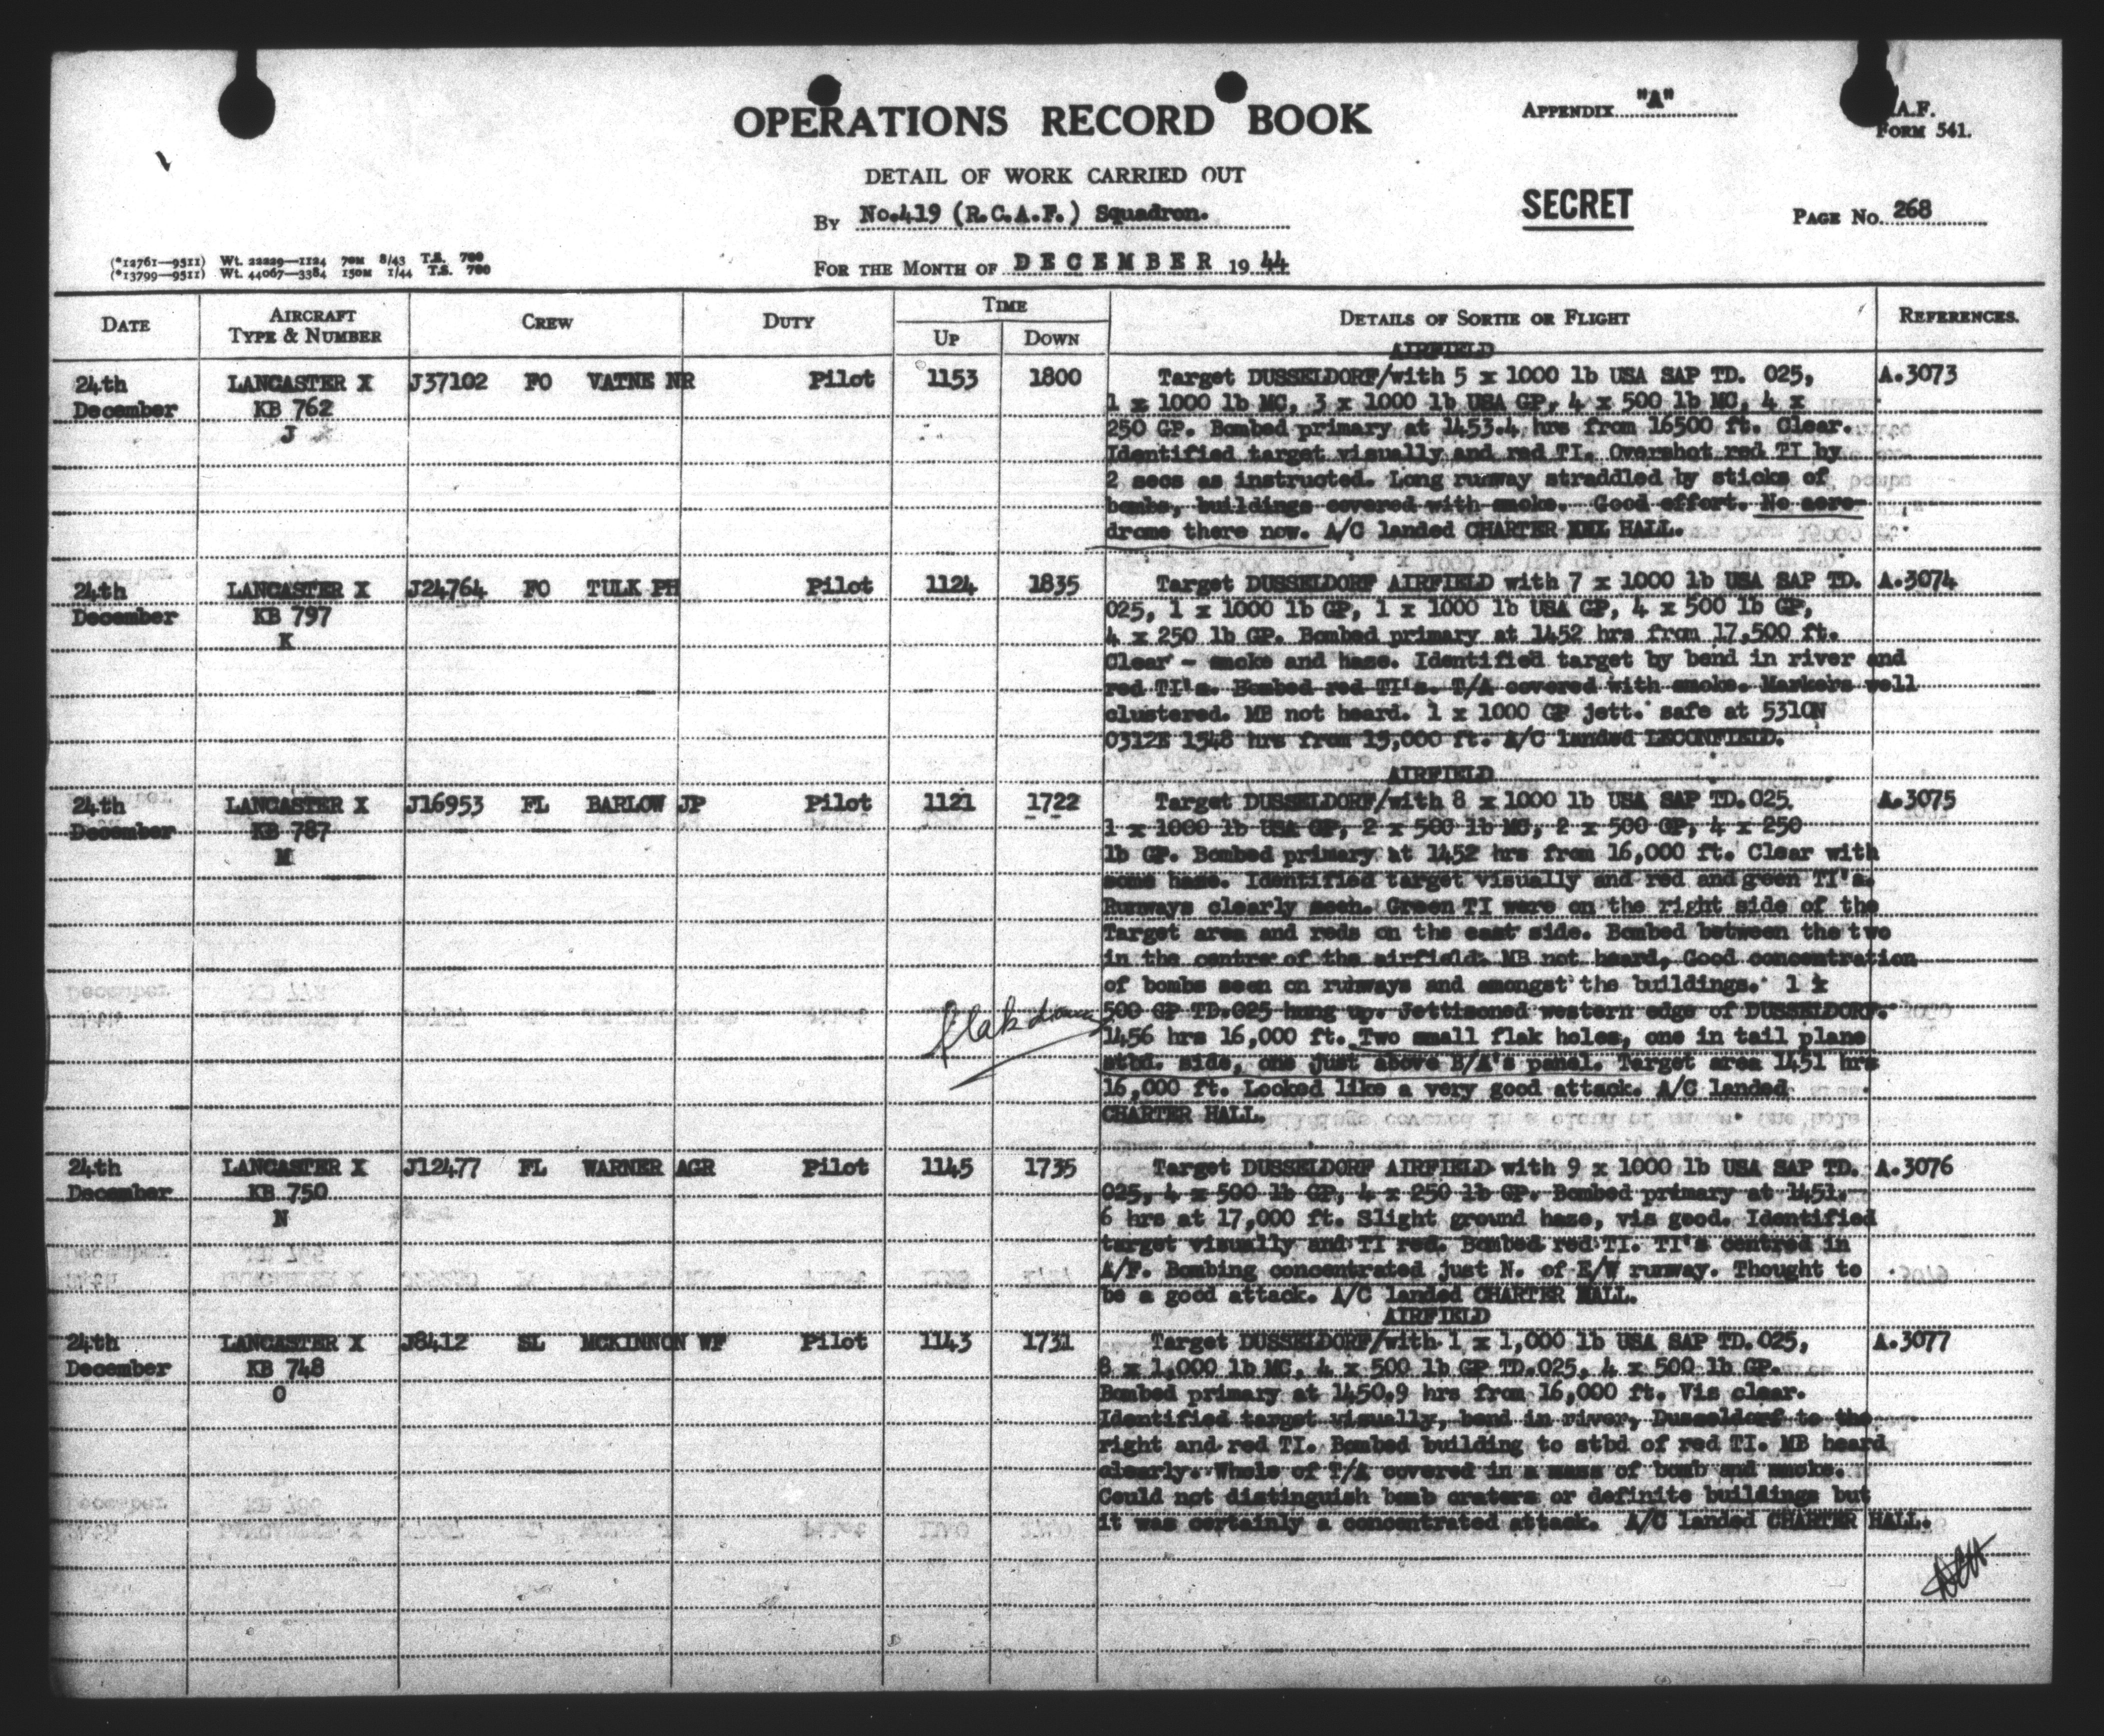 OPERATIONS RECORD BOOK
APPENDIX "A"
A.F.
FORM 541.
DETAIL OF WORK CARRIED OUT
By No.419 (R.C.A.F.) Squadron.
SECRET
PAGE No. 268
(*12761—9511) Wt. 22229—1124 70M 8/43 T.S. 700
(*13799—9511) Wt. 44067—3384 150M 1/44 T.S. 700
FOR THE MONTH OF DECEMBER 1944
DATE
AIRCRAFT
TYPE & NUMBER
CREW
DUTY
TIME
UP
DOWN
DETAILS OF SORTIE OR FLIGHT
REFERENCES.
AIRFIELD
24th LANCASTER X J37102 FO VATNE NR Pilot 1153 1800 Target DUSSELDORF/with 5 x 1000 lb USA SAP TD. 025, A.3073
December KB 762 1 x 1000 lb MC, 3 x 1000 lb USA GP, 4 x 500 lb MC, 4 x
J 250 GP. Bombed primary at 1453.4 hrs from 16500 ft. Clear.
Identified target visually and red TI. Overshot red TI by
2 secs as instructed. Long runway straddled by sticks of
bombs, buildings covered with smoke. Good effort. No aero-
drome there now. A/C landed CHARTER HALL.
24th LANCASTER X J24764 FO TULK PH Pilot 1124 1835 Target DUSSELDORF AIRFIELD with 7 x 1000 lb USA SAP TD. A.3074
December KB 797 025, 1 x 1000 lb GP, 1 x 1000 lb USA GP, 4 x 500 lb GP,
K 4 x 250 lb GP. Bombed primary at 1452 hrs from 17,500 ft.
Clear - smoke and haze. Identified target by bend in river and
red TI's. Bombed red TI's. T/A covered with smoke. Markers well
clustered. MB not heard. 1 x 1000 GP jett. safe at 5310N
0312E 1548 hrs from 15,000 ft. A/C landed LECONFIELD.
AIRFIELD
24th LANCASTER X J16953 FL BARLOW JP Pilot 1121 1722 Target DUSSELDORF/with 8 x 1000 lb USA SAP TD.025 A.3075
December KB 787 1 x 1000 lb USA GP, 2 x 500 lb MC, 2 x 500 GP, 4 x 250
M lb GP. Bombed primary at 1452 hrs from 16,000 ft. Clear with
some haze. Identified target visually and red and green TI's.
Runways clearly seen. Green TI were on the right side of the
Target area and reds on the east side. Bombed between the two
in the centre of the airfield. MB not heard, Good concentration
of bombs seen on runways and amongst the buildings. 1 x
500 GP TD.025 hung up. Jettisoned western edge of DUSSELDORF.
flak 1456 hrs 16,000 ft. Two small flak holes, one in tail plane
stbd. side, one just above B/A's panel. Target area 1451 hrs
16,000 ft. Looked like a very good attack. A/C landed
CHARTER HALL.
24th LANCASTER X J12477 FL WARNER AGR Pilot 1145 1735 Target DUSSELDORF AIRFIELD with 9 x 1000 lb USA SAP TD. A.3076
December KB 750 025, 4 x 500 lb GP, 4 x 250 lb GP. Bombed primary at 1451.
N 6 hrs at 17,000 ft. Slight ground haze, vis good. Identified
target visually and TI red. Bombed red TI. TI's centred in
A/F. Bombing concentrated just N. of E/W runway. Thought to
be a good attack. A/C landed CHARTER HALL.
AIRFIELD
24th LANCASTER X J8412 SL MCKINNON WF Pilot 1143 1731 Target DUSSELDORF/with 1 x 1,000 lb USA SAP TD.025, A.3077
December KB 748 8 x 1,000 lb MC, 4 x 500 lb GP TD.025, 4 x 500 lb GP.
O Bombed primary at 1450.9 hrs from 16,000 ft. Vis clear.
Identified target visually, bend in river, Dusseldorf to the
right and red TI. Bombed building to stbd of red TI. MB heard
clearly. Whole of T/A covered in a mass of bomb and smoke.
Could not distinguish bomb craters or definite buildings but
it was certainly a concentrated attack. A/C landed CHARTER HALL.